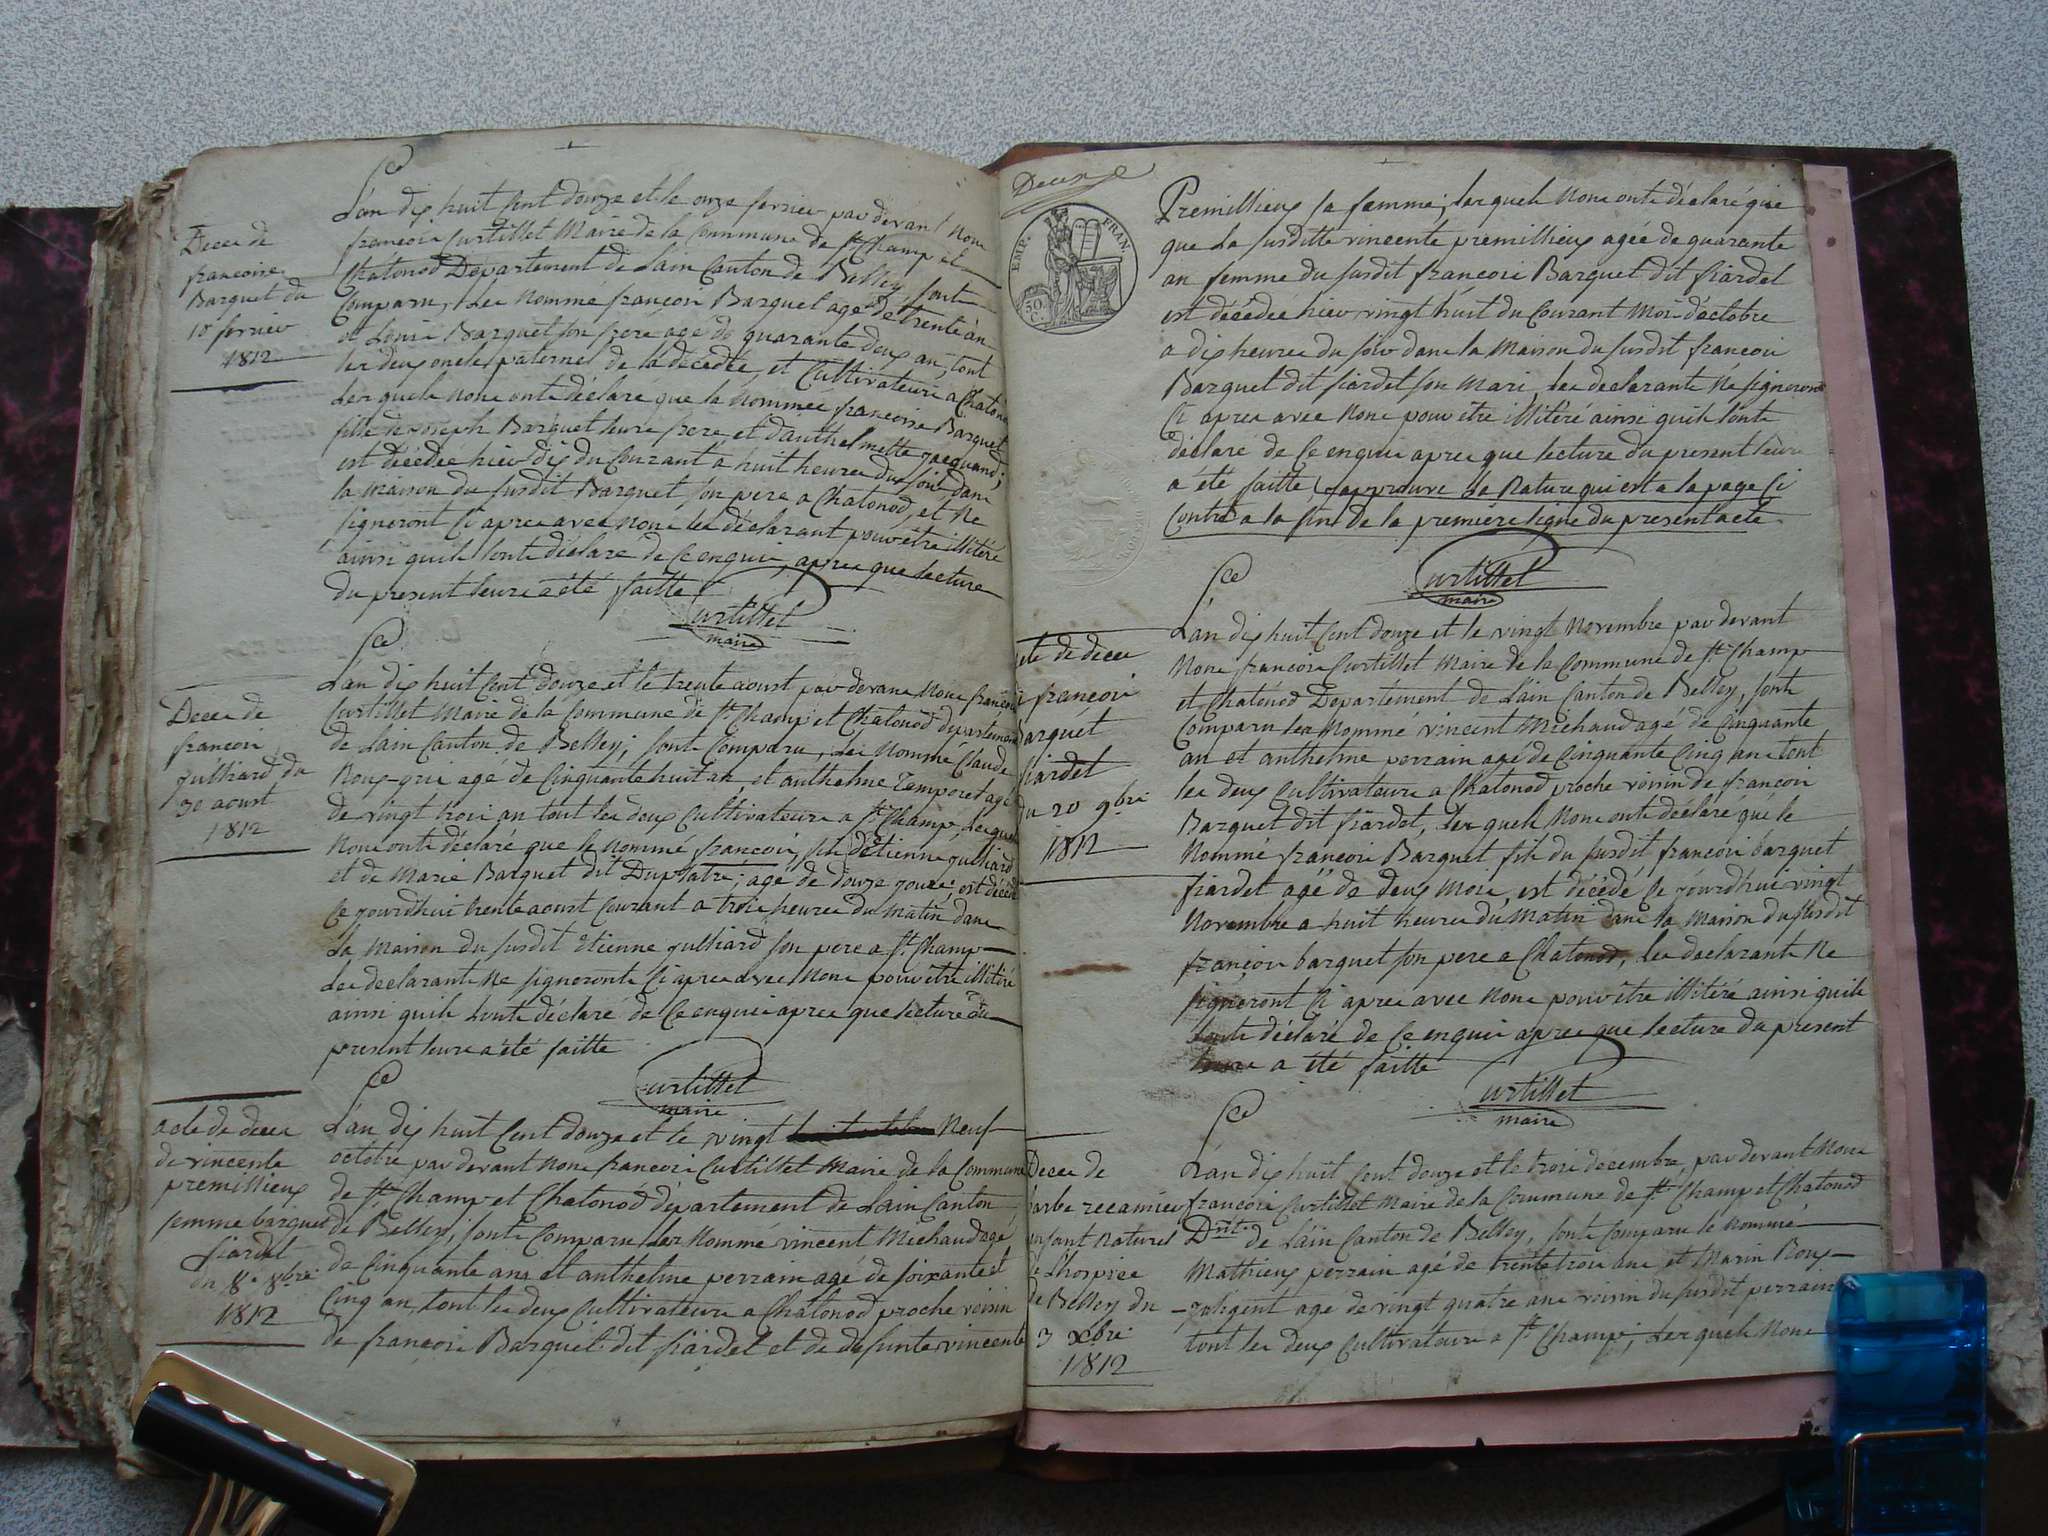 Deces de
francoise
Barquet du
10 fevrier
1812
L'an dix huit Cent douze et le onze fevrier par devant Nous
francois Curtillet Maire de la Commune de St Champ et
Chatonod Département de Lain Canton de Belley, sont
Comparu, Les Nommé françois Barquet agé de trente an
et Louis Barquet son frere agé de quarante deux an, tout
les deux oncles paternel de la décedée, et Cultivateurs a Chatonod
Lesquels Nous ont déclaré que la Nommée francoise Barquet
fille de Joseph Barquet leurs frere et danthelmette Jacquand;
est décédée hier dix du Courant a huit heures du soir dans
la Maison du susdit Barquet son pere a Chatonod, et Ne
signeront Ci apres avec Nous les déclarant pour être illitéré
ainsi quils Lont déclaré de Ce enquis, apres que lecture
du présent leurs a été faitte
Curtillet
maire
Deces de
francois
Julliard du
30 aoust
1812
L'an dix huit Cent douze et le trente aoust par devant Nous francois
Curtillet Maire de la Commune de St Champ et Chatonod département
de Lain Canton de Belley, sont Comparu, Les Nommé Claude
Roux agé de Cinquante huit an, et anthelme Temporet agé
de vingt trois an tout les deux Cultivateurs a St Champ Lesquels
Nous ont déclaré que le Nommé francois, fils détienne Julliard
et de Marie Barquet dit Duplatre, agé de douze jours est décédé
Ce jourdhui trente aoust Courant a trois heures du Matin dans
La Maison du susdit Etienne Julliard son pere a St Champ
Les déclarant Ne signeront Ci apres avec Nous pour être illitéré
ainsi quils Lont déclaré de Ce enquis apres que lecture du
présent leurs a été faitte
Curtillet
maire
acte de deces
de vincente
premillieux
femme barquet
fiardet
du 8bre
1812
L'an dix huit Cent douze et le vingt Neuf
octobre par devant Nous francois Curtillet Maire de la Commune
de St Champ et Chatonod département de Lain Canton
de Belley, sont Comparu Les Nommé vincent Michaud agé
de Cinquante ans et anthelme perrain agé de soixante et
Cinq an, tout les deux Cultivateurs a Chatonod proche voisin
de francois Barquet dit fiardet et de defunte vincente
Deuxe
EMP. FRAN.
50 C.
Premillieux sa femme, lesquels Nous ont déclaré que
que La susditte vincente premillieux agée de quarante
an femme du susdit francois Barquet dit fiardet
est décédée hier vingt huit du Courant Mois doctobre
a dix heures du soir dans la Maison du susdit francois
Barquet dit fiardet son Mari, les déclarants Ne signeront
Ci apres avec Nous pour être illitéré ainsi quils Lont
déclaré de Ce enquis apres que lecture du present leurs
a été faitte, Japrouve la Rature qui est a la page Ci
Contre a la fin de la première ligne du present acte
Curtillet
maire
de deces
francois
Barquet
fiardet
du 20 9bre
1812
L'an dix huit Cent douze et le vingt Novembre par devant
Nous francois Curtillet Maire de la Commune de St Champ
et Chatonod Département de Lain Canton de Belley, sont
Comparu Les Nommé vincent Michaud agé de Cinquante
an et anthelme perrain agé de Cinquante Cinq an tout
les deux Cultivateurs a Chatonod proche voisin de francois
Barquet dit fiardet, Lesquels Nous ont déclaré que le
Nommé francois Barquet fils du susdit francois barquet
fiardet agé de deux Mois est décédé Ce jourd'hui vingt
Novembre a huit heures du Matin dans la Maison du susdit
françois barquet son pere a Chatonod, les déclarants Ne
signeront Ci apres avec Nous pour être illitéré ainsi quils
Lont déclaré de Ce enquis apres que lecture du present
leurs a été faitte
Curtillet
maire
Deces de
barbe recamier
enfant Naturel
de Lhospice
de Belley du
3 xbre
1812
L'an dix huit Cent douze et le trois decembre, par devant Nous
francois Curtillet Maire de la Commune de St Champ et Chatonod
Dmt de Lain Canton de Belley, sont Comparu le Nommé
Mathieux perrain agé de trente trois ans et Marin Roux
agé de vingt quatre ans voisin du susdit perrain
tout les deux Cultivateurs a St Champ, Lesquels Nous